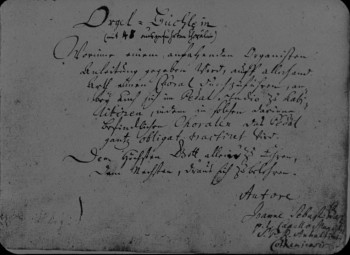 Orgel-Büchlein
(mit 48 ausgeführten Chorälen)
Worinne einem anfahenden Organisten
Anleitung gegeben wird, auff allerhand
Arth einen Choral durchzuführen, an-
bey auch sich im Pedal studio zu habi-
litiren, indem in solchen darinne
befindlichen Choralen das Pedal
gantz obligat tractiret wird.
Dem Höchsten Gott allein zu Ehren,
Dem Nechsten, draus sich zu belehren.
Autore
Joanne Sebast.
p. t. Capellae